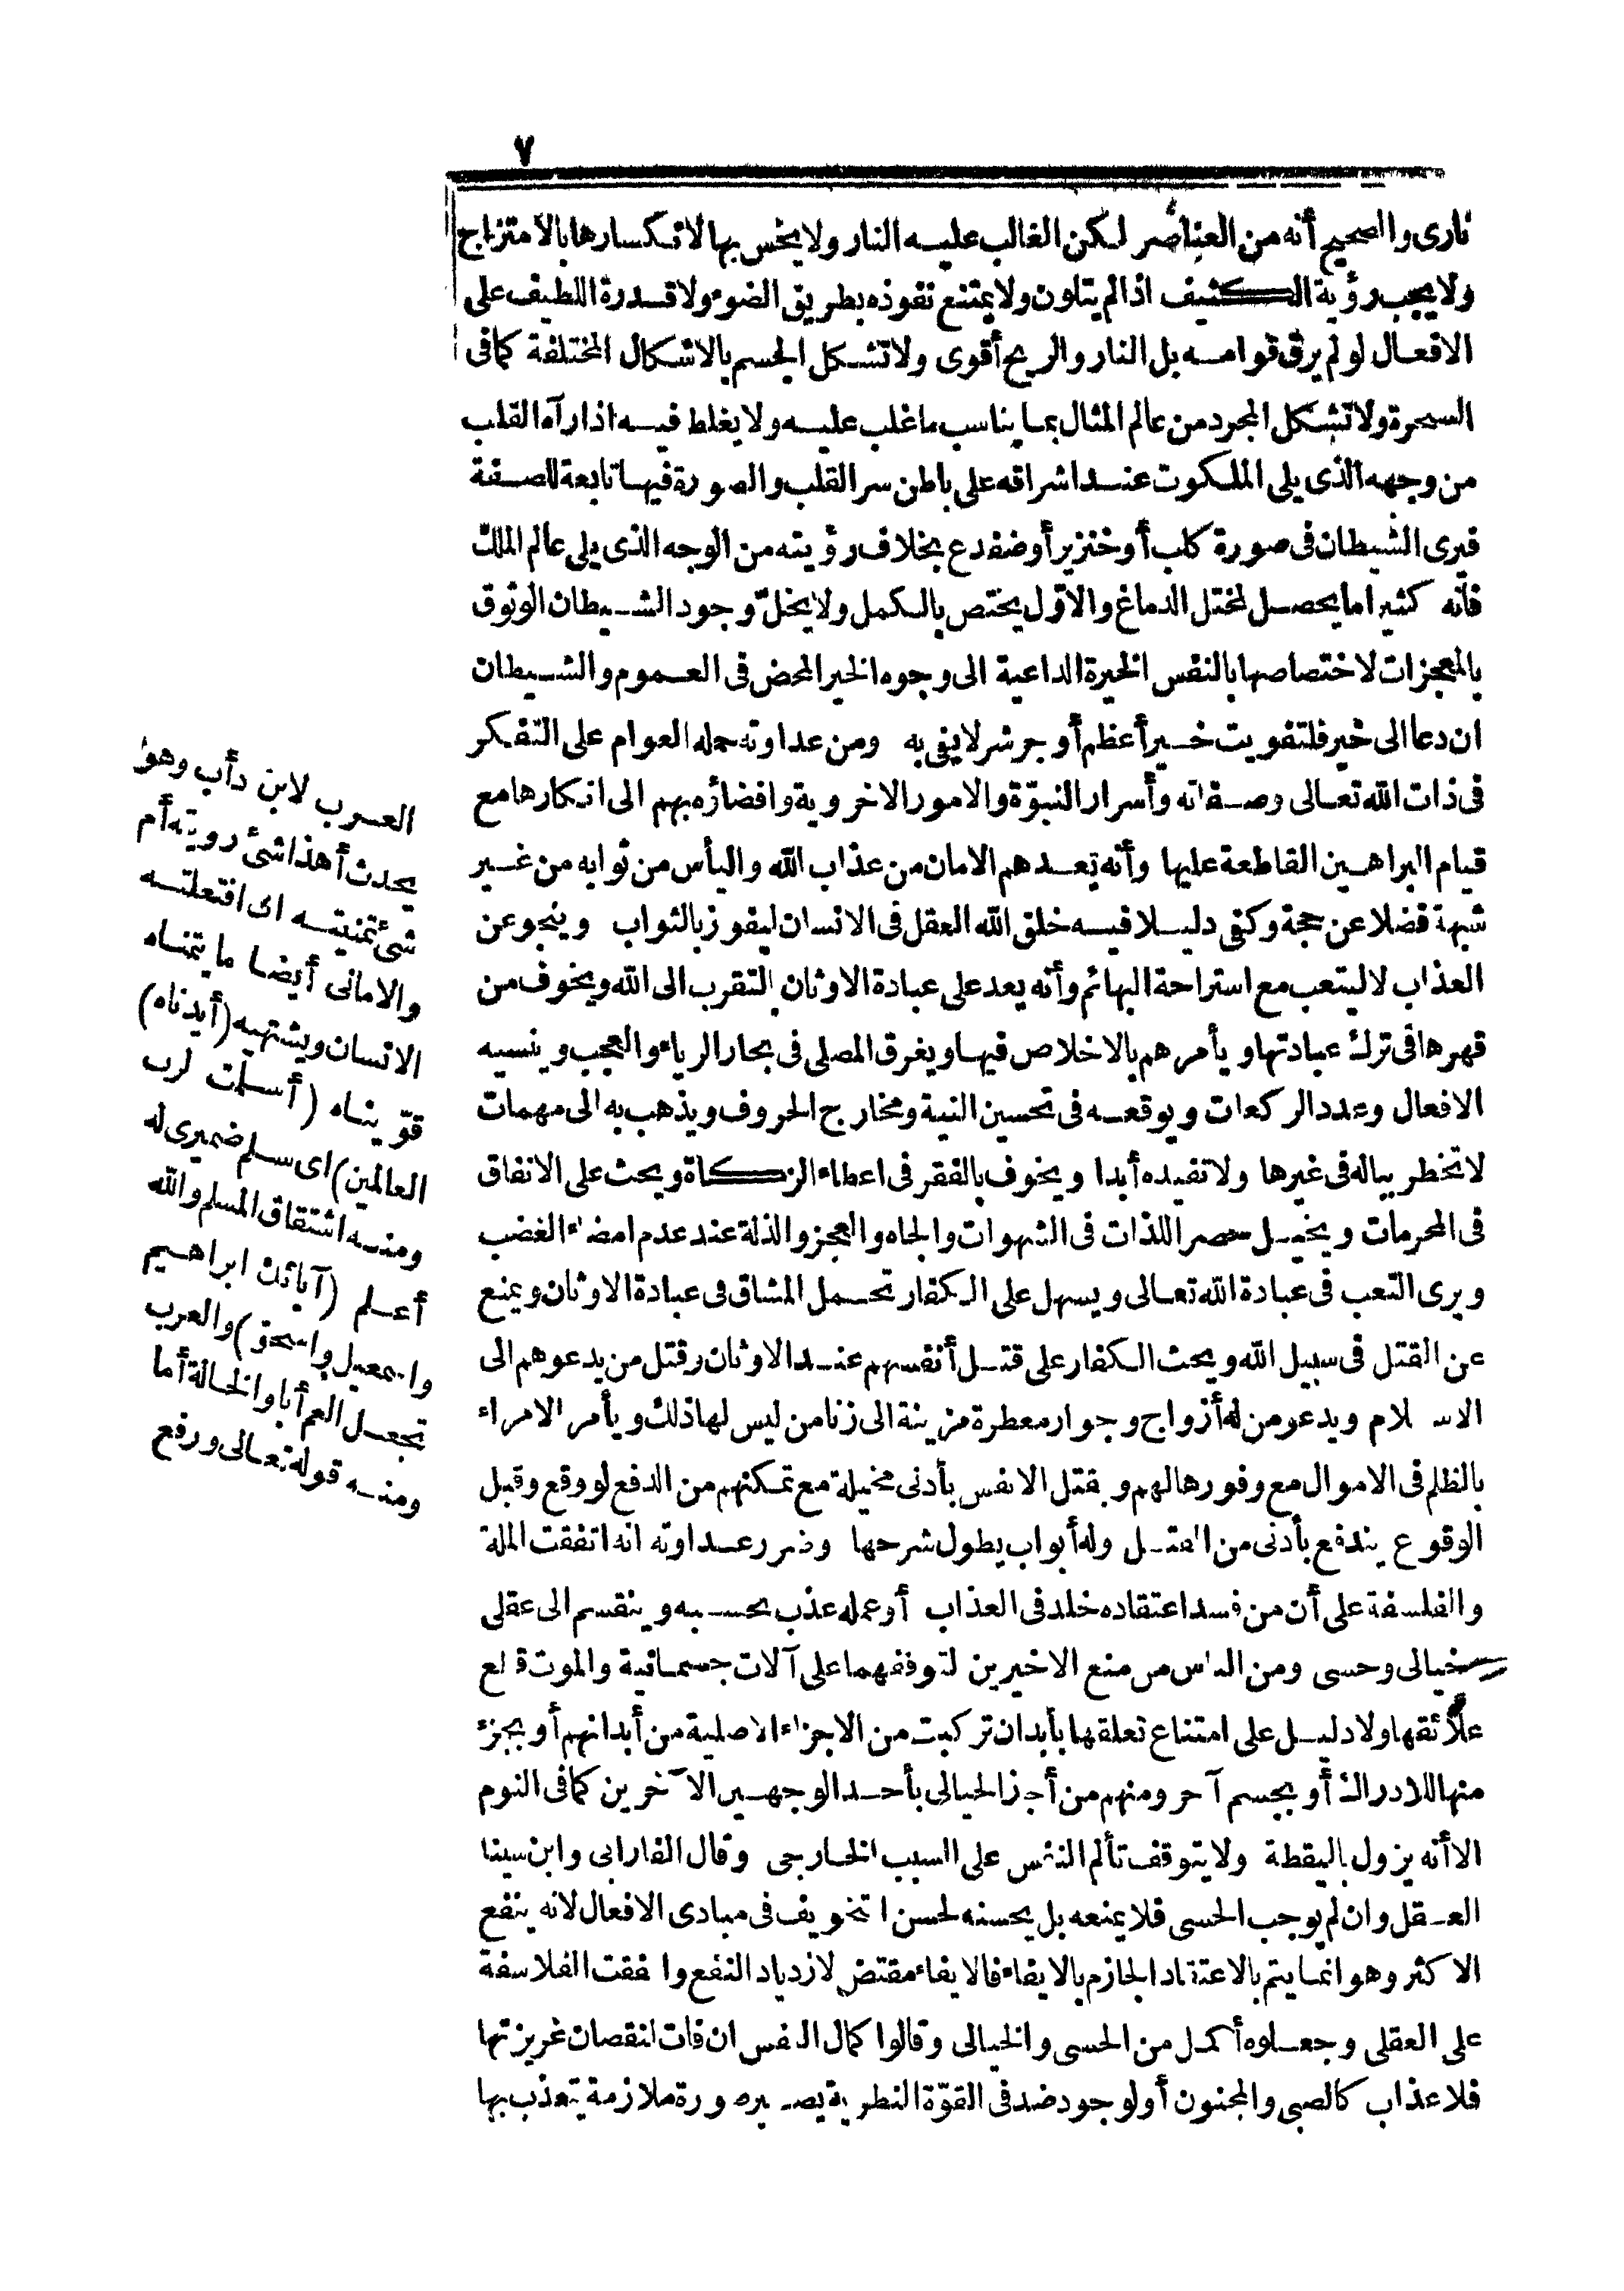 ٧
نارى والصحيح أنه من العناصر لكن الغالب عليه النار ولا يحس بها لانكسارها بالامتزاج
ولا يجب رؤية الكثيف اذا لم يتلون ولا يمتنع نفوذه بطريق الضوء ولا قدرة اللطيف على
الافعال لو لم يرق قوامه بل النار والريح أقوى ولا تشكل الجسم بالاشكال المختلفة كما فى
السحرة ولا تشكل المجرد من عالم المثال بما يناسب ما غلب عليه ولا يغلط فيه اذا رآه القلب
من وجهه الذى يلى الملكوت عند اشراقه على باطن سر القلب والصورة فيها تابعة للصفة
فيرى الشيطان فى صورة كلب أو خنزير أو ضفدع بخلاف رؤيته من الوجه الذى يلى عالم الملك
فانه كثيرا ما يحصل لمختل الدماغ والاول يختص بالكمل ولا يخل وجود الشيطان الوثوق
بالمعجزات لاختصاصها بالنفس الخيرة الداعية الى وجوه الخير المحض فى العموم والشيطان
ان دعا الى خير فلتفويت خير أعظم أو جر شر لا يفى به ومن عداوته حمله العوام على التفكر
فى ذات الله تعالى وصفاته وأسرار النبوّة والامور الاخروية وافضاؤه بهم الى انكارها مع
قيام البراهين القاطعة عليها وأنه يعدهم الامان من عذاب الله واليأس من ثوابه من غير
شبهة فضلا عن حجة وكفى دليلا فيه خلق الله العقل فى الانسان ليفوز بالثواب وينجو عن
العذاب لا ليتعب مع استراحة البهائم وأنه يعد على عبادة الاوثان التقرب الى الله ويخوف من
قهرها فى ترك عبادتها ويأمرهم بالاخلاص فيها ويغرق المصلى فى بحار الرياء والعجب وينسيه
الافعال وعدد الركعات ويوقعه فى تحسين النية ومخارج الحروف ويذهب به الى مهمات
لا تخطر بباله فى غيرها ولا تفيده أبدا ويخوف بالفقر فى اعطاء الزكاة ويحث على الانفاق
فى المحرمات ويخيل حصر اللذات فى الشهوات والجاه والعجز والذلة عند عدم امضاء الغضب
ويرى التعب فى عبادة الله تعالى ويسهل على الكفار تحمل المشاق فى عبادة الاوثان ويمنع
عن القتل فى سبيل الله ويحث الكفار على قتل أنفسهم عند الاوثان وقتل من يدعوهم الى
الاسلام ويدعو من له أزواج وجوار معطرة مزينة الى زنا من ليس لها ذلك ويأمر الامراء
بالظلم فى الاموال مع وفورها لهم وبقتل الانفس بأدنى مخيلة مع تمكنهم من الدفع لو وقع وقبل
الوقوع يندفع بأدنى من القتل وله أبواب يطول شرحها وضرر عداوته انه اتفقت الملة
والفلسفة على أن من فسد اعتقاده خلد فى العذاب أو عمله عذب بحسبه وينقسم الى عقلى
وخيالى وحسى ومن الناس من منع الاخيرين لتوقفهما على آلات جسمانية والموت قاطع
علائقها ولا دليل على امتناع تعلقها بأبدان تركبت من الاجزاء الاصلية من أبدانهم أو بجزء
منها للادراك أو بجسم آخر ومنهم من أجاز الخيالى بأحد الوجهين الآخرين كما فى النوم
الا أنه يزول باليقظة ولا يتوقف تألم النفس على السبب الخارجى وقال الفارابى وابن سينا
العقل وان لم يوجب الحسى فلا يمنعه بل يحسنه لحسن التخويف فى مبادى الافعال لانه ينفع
الاكثر وهو انما يتم بالاعتقاد الجازم بالايفاء فالايفاء مقتض لازدياد النفع وافقت الفلاسفة
على العقلى وجعلوه أكمل من الحسى والخيالى وقالوا كمال النفس ان فات لنقصان غريزتها
فلا عذاب كالصبى والمجنون أو لوجود ضد فى القوّة النظرية يصير صورة ملازمة يتعذب بها
العرب لابن دأب وهو
يحدث أهذا شئ رويته أم
شئ تمنيته اى افتعلته
والامانى أيضا ما يتمناه
الانسان ويشتهيه (أيدناه)
قوّيناه (أسلمت لرب
العالمين) اى سلم ضميرى له
ومنه اشتقاق المسلم والله
أعلم (آبائك ابراهيم
واسمعيل واسحق) والعرب
تجعل العم أبا والخالة أما
ومنه قوله تعالى ورفع